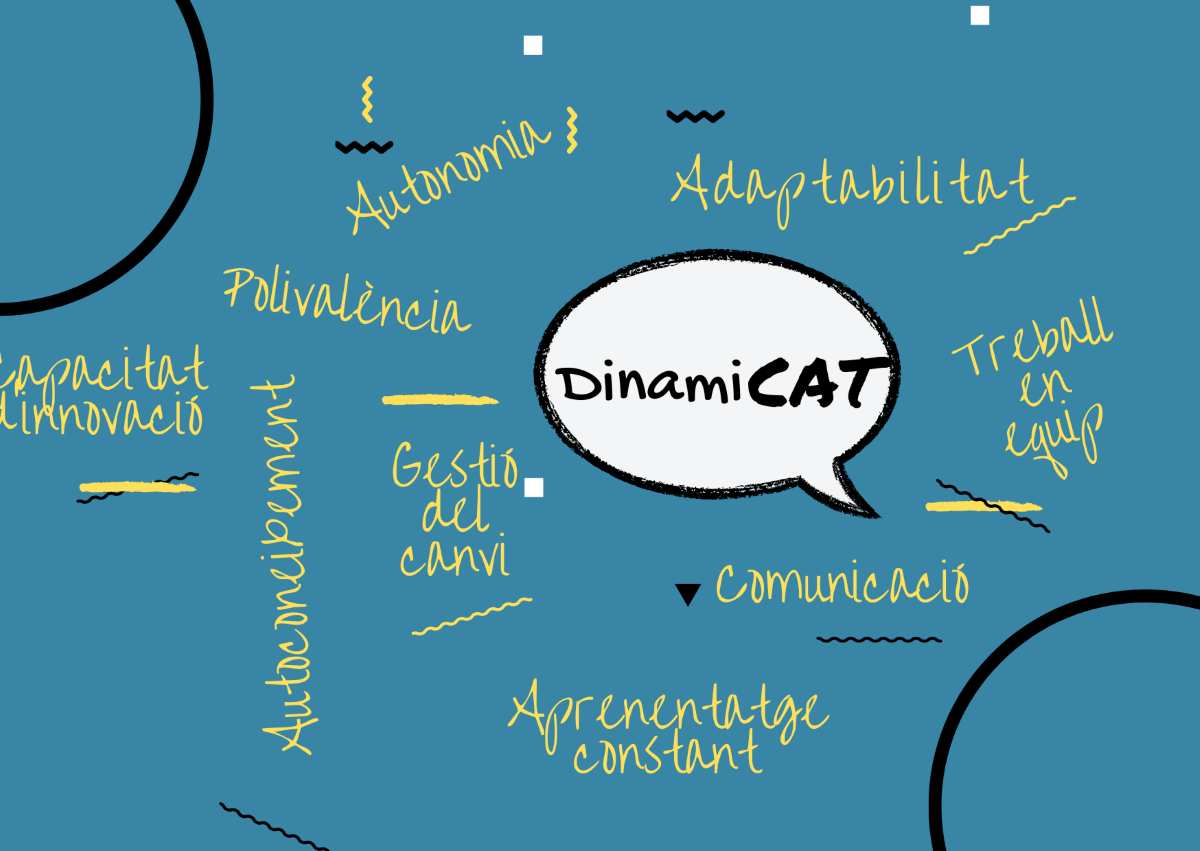 Autonomia
Adaptabilitat
Polivalència
DinamiCAT
Treball
en
equip
Capacitat
d'innovació
Autoconeipement
Gestió
del
canvi
Comunicació
Aprenentatge
constant